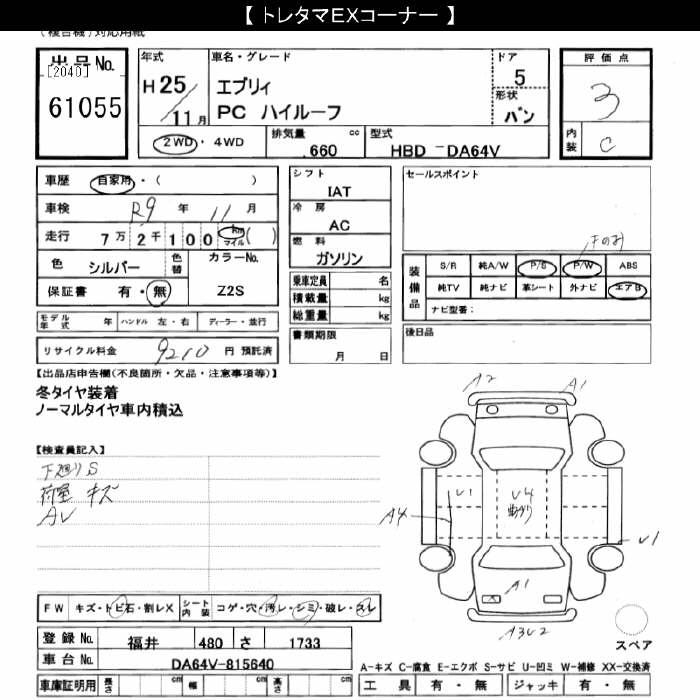 【 トレタマEXコーナー 】
(複合機)対応用紙
出品No.
[2040]
61055
年式
H 25/11月
車名・グレード
エブリィ
PC ハイルーフ
ドア
5
形状
バン
評価点
3
内装
C
2WD・4WD
排気量 .660 cc
型式 HBD -DA64V
車歴 自家用・( )
車検 R9 年 11 月
走行 7万 2千 1 0 0 km マイル ( )
色 シルバー 色替 カラーNo.
保証書 有・無 Z2S
モデル年式 年 ハンドル 左・右 ディーラー・並行
リサイクル料金 9210 円 預託済
シフト
IAT
冷房
AC
燃料
ガソリン
乗車定員 名
積載量 kg
総重量 kg
書類期限
月 日
セールスポイント
装備品
S/R 純A/W P/S P/W ABS
純TV 純ナビ 革シート 外ナビ エアB
ナビ型番:
後日品
【出品店申告欄(不良箇所・欠品・注意事項等)】
冬タイヤ装着
ノーマルタイヤ車内積込
【検査員記入】
下廻りS
荷室 キズ
AV
A2 A1
U1
U4
A4
U1
A1
A3U2
スペア
FW キズ・トビ石・割レX シート内装 コゲ・穴・汚レ・シミ・破レ・スレ
登録No. 福井 480 さ 1733
車台No. DA64V-815640
車庫証明用 長さ cm 幅 cm 高さ cm
A-キズ C-腐食 E-エクボ S-サビ U-凹ミ W-補修 XX-交換済
工具 有・無 ジャッキ 有・無